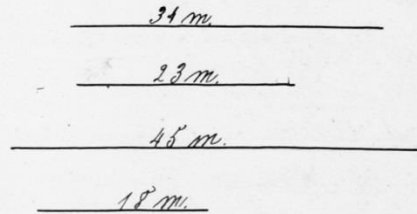 34 m.
23 m.
45 m.
18 m.